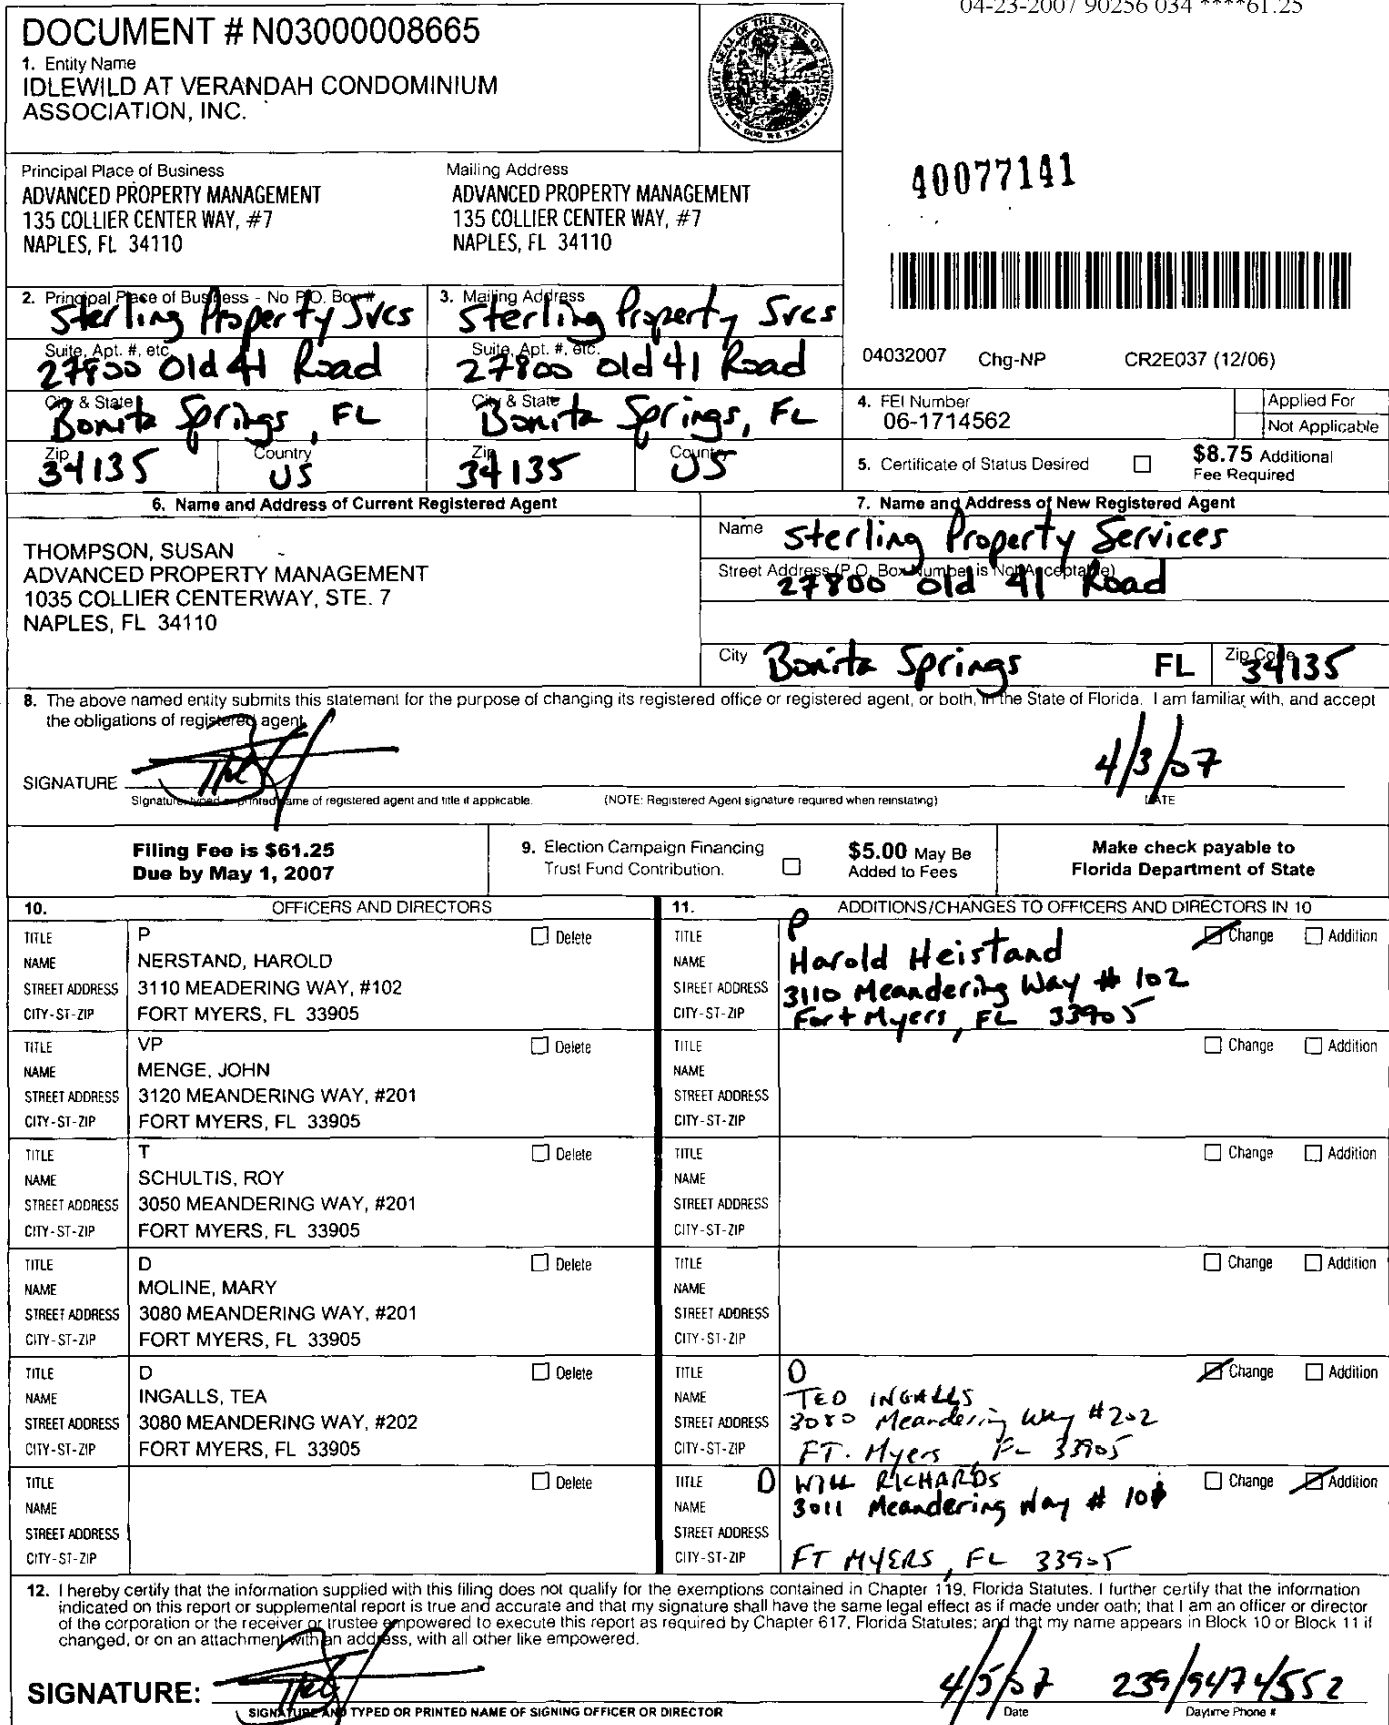 04-23-2007 90256 034 ****61.25
DOCUMENT # N03000008665
1. Entity Name
IDLEWILD AT VERANDAH CONDOMINIUM
ASSOCIATION, INC.
GREAT SEAL OF THE STATE OF FLORIDA
IN GOD WE TRUST
Principal Place of Business
ADVANCED PROPERTY MANAGEMENT
135 COLLIER CENTER WAY, #7
NAPLES, FL 34110
Mailing Address
ADVANCED PROPERTY MANAGEMENT
135 COLLIER CENTER WAY, #7
NAPLES, FL 34110
40077141
2. Principal Place of Business - No P.O. Box #
Sterling Property Svcs
Suite, Apt. #, etc.
27800 Old 41 Road
City & State
Bonita Springs, FL
Zip
34135
Country
US
3. Mailing Address
Sterling Property Svcs
Suite, Apt. #, etc.
27800 Old 41 Road
City & State
Bonita Springs, FL
Zip
34135
Country
US
04032007 Chg-NP CR2E037 (12/06)
4. FEI Number
06-1714562
Applied For
Not Applicable
5. Certificate of Status Desired
$8.75 Additional
Fee Required
6. Name and Address of Current Registered Agent
THOMPSON, SUSAN
ADVANCED PROPERTY MANAGEMENT
1035 COLLIER CENTERWAY, STE. 7
NAPLES, FL 34110
7. Name and Address of New Registered Agent
Name Sterling Property Services
Street Address (P.O. Box Number is Not Acceptable)
27800 Old 41 Road
City Bonita Springs FL Zip Code 34135
8. The above named entity submits this statement for the purpose of changing its registered office or registered agent, or both, in the State of Florida. I am familiar with, and accept
the obligations of registered agent.
SIGNATURE
4/3/07
Signature, typed or printed name of registered agent and title if applicable. (NOTE: Registered Agent signature required when reinstating) DATE
Filing Fee is $61.25
Due by May 1, 2007
9. Election Campaign Financing
Trust Fund Contribution.
$5.00 May Be
Added to Fees
Make check payable to
Florida Department of State
10. OFFICERS AND DIRECTORS
TITLE P Delete
NAME NERSTAND, HAROLD
STREET ADDRESS 3110 MEADERING WAY, #102
CITY-ST-ZIP FORT MYERS, FL 33905
TITLE VP Delete
NAME MENGE, JOHN
STREET ADDRESS 3120 MEANDERING WAY, #201
CITY-ST-ZIP FORT MYERS, FL 33905
TITLE T Delete
NAME SCHULTIS, ROY
STREET ADDRESS 3050 MEANDERING WAY, #201
CITY-ST-ZIP FORT MYERS, FL 33905
TITLE D Delete
NAME MOLINE, MARY
STREET ADDRESS 3080 MEANDERING WAY, #201
CITY-ST-ZIP FORT MYERS, FL 33905
TITLE D Delete
NAME INGALLS, TEA
STREET ADDRESS 3080 MEANDERING WAY, #202
CITY-ST-ZIP FORT MYERS, FL 33905
TITLE Delete
NAME
STREET ADDRESS
CITY-ST-ZIP
11. ADDITIONS/CHANGES TO OFFICERS AND DIRECTORS IN 10
TITLE P Change Addition
NAME Harold Heistand
STREET ADDRESS 3110 Meandering Way # 102
CITY-ST-ZIP Fort Myers, FL 33905
TITLE Change Addition
NAME
STREET ADDRESS
CITY-ST-ZIP
TITLE Change Addition
NAME
STREET ADDRESS
CITY-ST-ZIP
TITLE Change Addition
NAME
STREET ADDRESS
CITY-ST-ZIP
TITLE D Change Addition
NAME TED INGALLS
STREET ADDRESS 3080 Meandering Way #202
CITY-ST-ZIP FT. Myers FL 33905
TITLE D WILL RICHARDS Change Addition
NAME 3011 Meandering Way # 101
STREET ADDRESS
CITY-ST-ZIP FT MYERS, FL 33905
12. I hereby certify that the information supplied with this filing does not qualify for the exemptions contained in Chapter 119, Florida Statutes. I further certify that the information
indicated on this report or supplemental report is true and accurate and that my signature shall have the same legal effect as if made under oath; that I am an officer or director
of the corporation or the receiver or trustee empowered to execute this report as required by Chapter 617, Florida Statutes; and that my name appears in Block 10 or Block 11 if
changed, or on an attachment with an address, with all other like empowered.
SIGNATURE:
4/5/07 239/9474552
SIGNATURE AND TYPED OR PRINTED NAME OF SIGNING OFFICER OR DIRECTOR Date Daytime Phone #